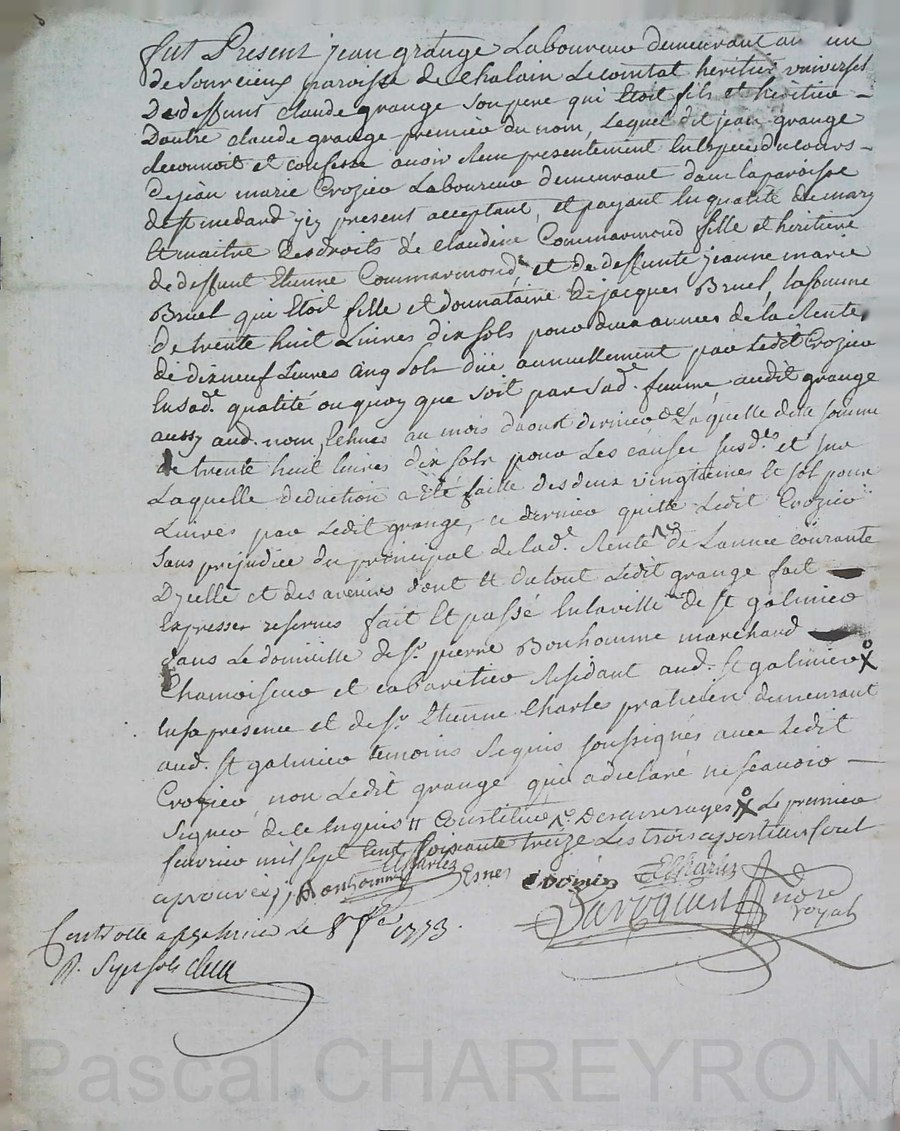 fut Present jean grange Laboureur demeurant au
de Souvcieux paroisse de Chalain Lecomtal heritier universel
De deffunt claude grange son pere qui Etoit fils et heritier
Dautre claude grange premier du nom, Lequel dit jean grange
Reconnoit et confesse avoir Receu presentement En Especes du cours
De jean marie Crozier Laboureur demeurant dans la paroisse
de st medard icy present acceptant, et payant En qualité de mary
Et maitre des droits de claudine Commarmond fille et heritiere
de deffunt Etienne Commarmond, et de deffunte jeanne marie
Bruel qui Etoit fille et donnataire de jacques Bruel, la somme
de trente huit Livres dix sols pour deux années de la Rente
de dixneuf Livres cinq sols düe annuellement par Ledit Crozier
En sad. qualité ou quoy que soit par sad. femme audit grange
aussy aud. nom, Echues au mois daoust dernier de Laquelle dite somme
de trente huit livres dix sols pour Les causes susd.es et sur
Laquelle deduction a Eté faitte des deux vingtiemes Et sol pour
Livres par Ledit grange, ce dernier quitte Ledit Crozier
Sans préjudice du principal de lad. Rente de Lannée courante
Dycelle et des avenirs dont et du tout Ledit grange fait
Expresses reserves fait Et passé En la ville de st galmier
dans Le domicille de Sr. pierre Bonhomme marchand
Chamoiseur et cabaretier Résidant aud. st galmier
En sa presence et de Sr. Etienne Charles praticien demeurant
aud. st galmier temoins Requis soussignés avec Ledit
Crozier, non Ledit grange qui a declaré ne scavoir
Signer de ce Enquis Le premier
fevrier mil sept Cent soixante treize Les trois apostilles sont
aprouvées Bonhomme ECharles
crozier ECharles
royal
Controllé a st galmier le 8 1773.
R. sols
Pascal CHAREYRON